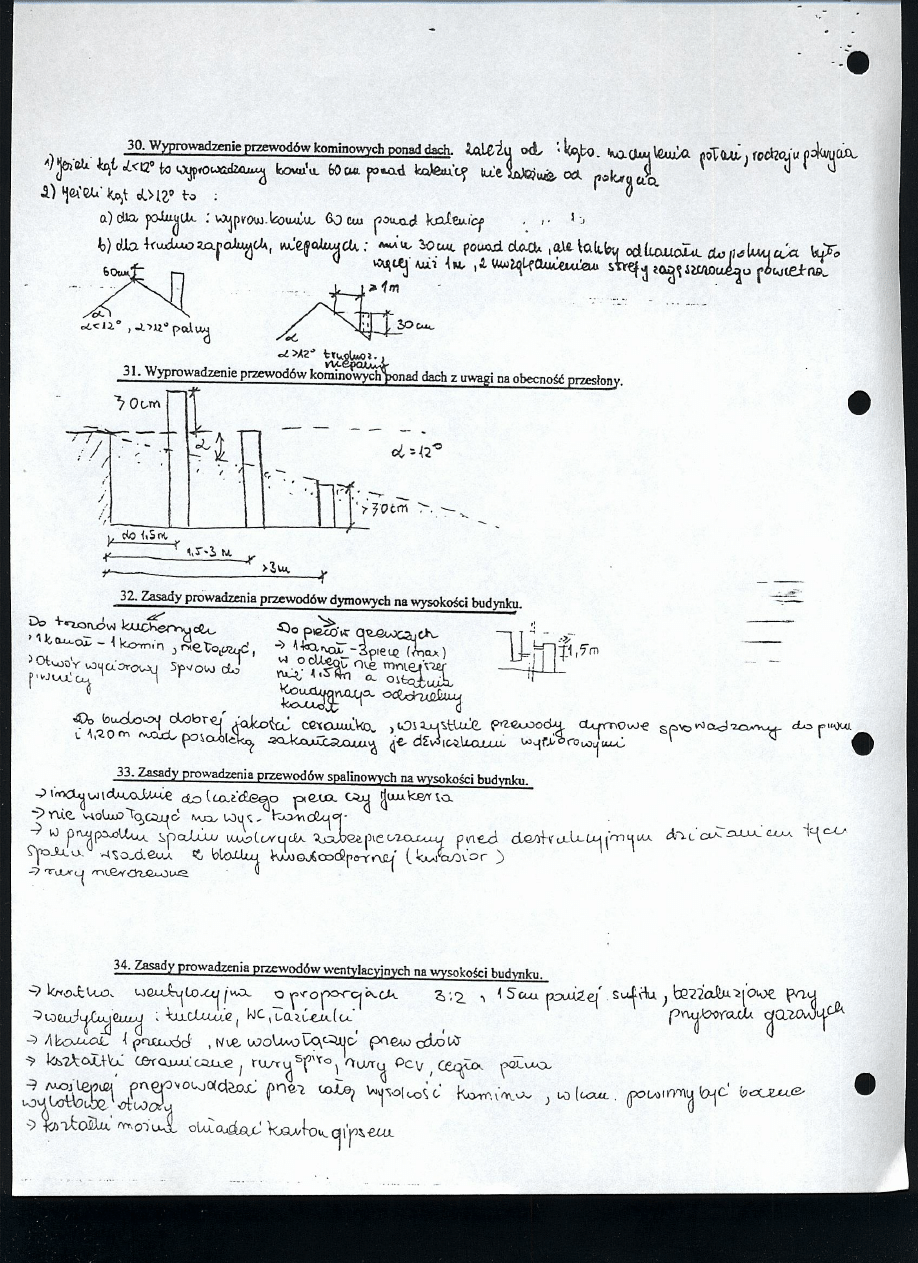 30. Wyprowadzenie przewodów kominowych ponad dach. zależy od : kąta nachylenia połaci, rodzaju pokrycia
1) Jeżeli kąt α<12° to wyprowadzamy komin 60cm ponad kalenicę nie zależnie od pokrycia
2) Jeżeli kąt α>12° to :
a) dla palnych : wyprow. komin 60cm ponad kalenicę
b) dla trudno zapalnych, niepalnych : min 30cm ponad dach, ale tak by od kanału do pokrycia było
więcej niż 1m, z uwzględnieniem strefy zagęszczonego powietrza
60cm
α
α<12°, α>12° palny
≥1m
30cm
α
α>12° trudnoz.,
niepalny
31. Wyprowadzenie przewodów kominowych ponad dach z uwagi na obecność przesłony.
30cm
α
α=12°
>30cm
do 1,5m
1,5-3m
>3m
32. Zasady prowadzenia przewodów dymowych na wysokości budynku.
Do trzonów kuchennych
> 1 kanał - 1 komin, nie łączyć,
> Otwór wyciorowy sprow do
piwnicy
Do pieców grzewczych
→ 1 kanał - 3 piece (max)
w odległ nie mniejszej
niż 1,5m a ostatnia
kondygnacja oddzielny
kanał
1,5m
Do budowy dobrej jakości ceramika, wszystkie przewody dymowe sprowadzamy do piwn
i 1,20m nad posadzką zakańczamy je drzwiczkami wyciorowymi
33. Zasady prowadzenia przewodów spalinowych na wysokości budynku.
→ indywidualnie do każdego pieca czy Junkersa
→ nie wolno łączyć na wys. kondyg.
→ w przypadku spalin mokrych zabezpieczamy przed destrukcyjnym działaniem tych
spalin wsadem z blachy kwasoodpornej (kwasior)
→ rury nierdzewne
34. Zasady prowadzenia przewodów wentylacyjnych na wysokości budynku.
→ kratka wentylacyjna o proporcjach 3:2, 15cm poniżej sufitu, bezżaluzjowe przy
przyborach gazowych
→ wentylujemy : kuchnie, WC, łazienki
→ 1 kanał 1 przewód, nie wolno łączyć przewodów
→ kształtki ceramiczne, rury spiro, rury PCV, cegła pełna
→ najlepiej przeprowadzać przez całą wysokość komina, w kan. powinny być boczne
wylotowe otwory
→ kształtki można okładać karton gipsem